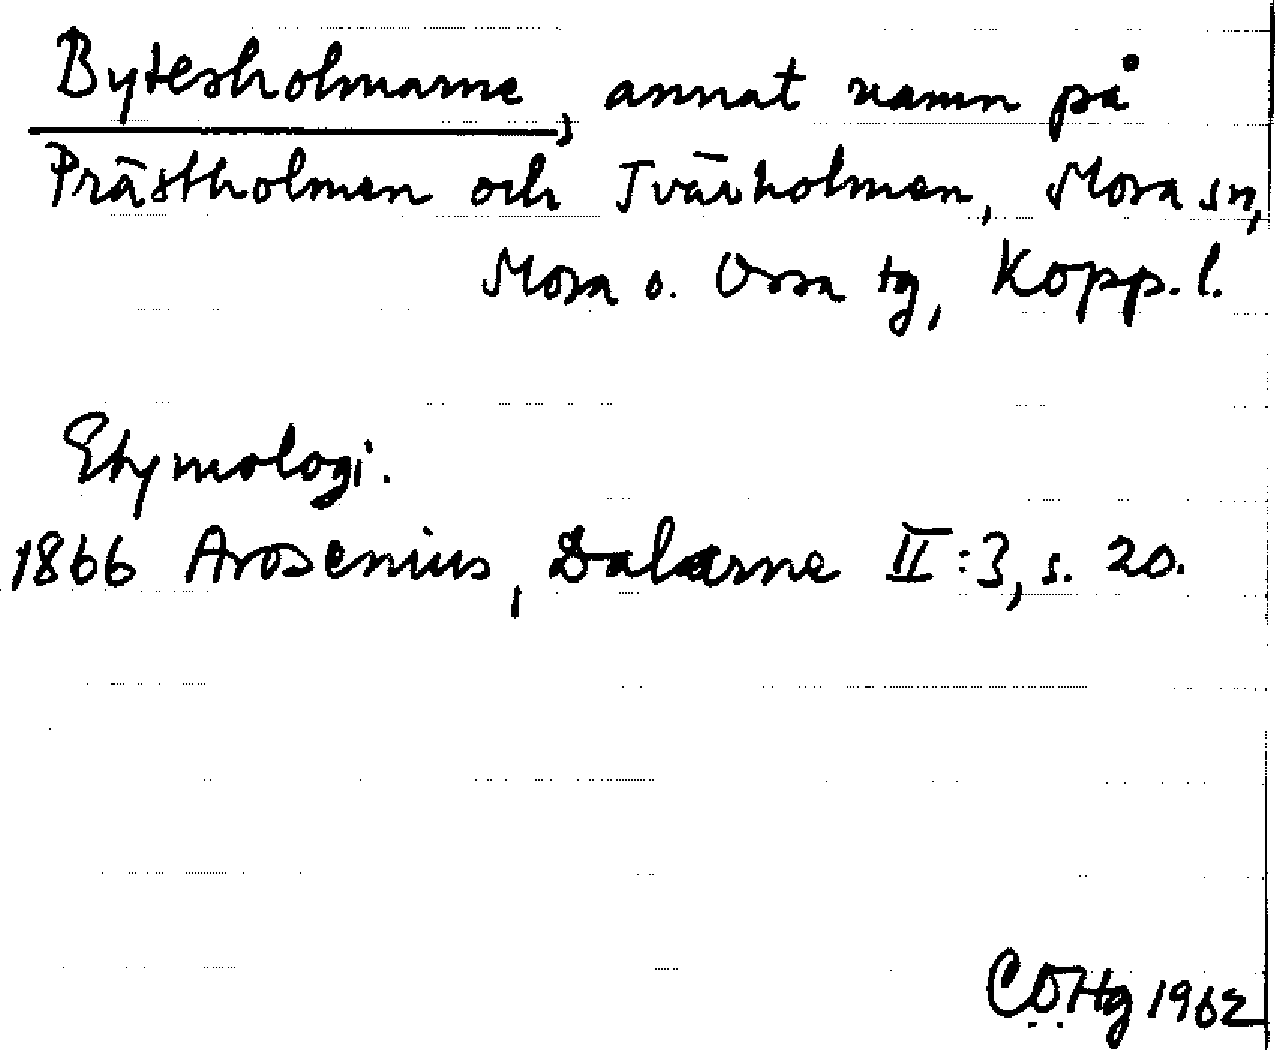 Bytesholmarne, annat namn på
Prästholmen och Tvärholmen, Mora sn,
Mora o. Orsa tg, Kopp. l.
Etymologi.
1866 Arosenius, Dalarne II:3, s. 20.
COHg 1962